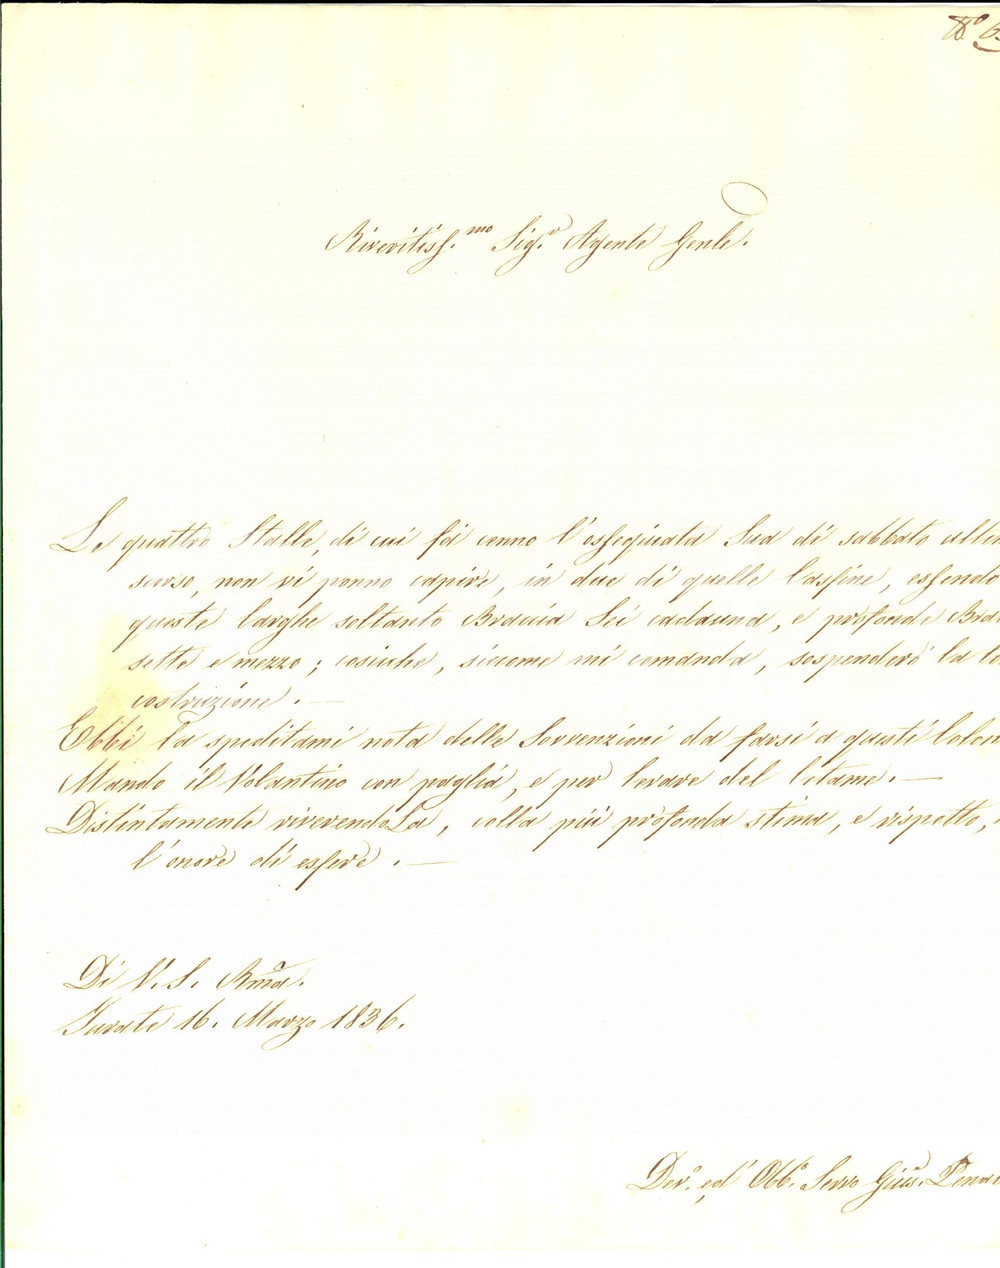 N.º 6
Riveritiss.mo Sig.r Agente Gen.le.
Le quattro Stalle, di cui fà cenno l'ossequiata Sua di sabbato ulti
scorso, non vi ponno capire, in due di quelle Cassine, essendo
queste larghe soltanto Braccia Sei cadauna, e profonde Bra
sette e mezzo; cosicche, siccome mi comanda, sospenderò la lo
costruzione. —
Ebbi la speditami nota delle Sovvenzioni da farsi a questi Colon
Mando il Volantino con paglia, e per levare del letame. —
Distintamente riverendoLa, colla più profonda stima, e rispetto,
l'onore di essere. —
Di V. S. Rma.
16. Marzo 1836.
Dev.º ed' Obb.º Servo Gius.